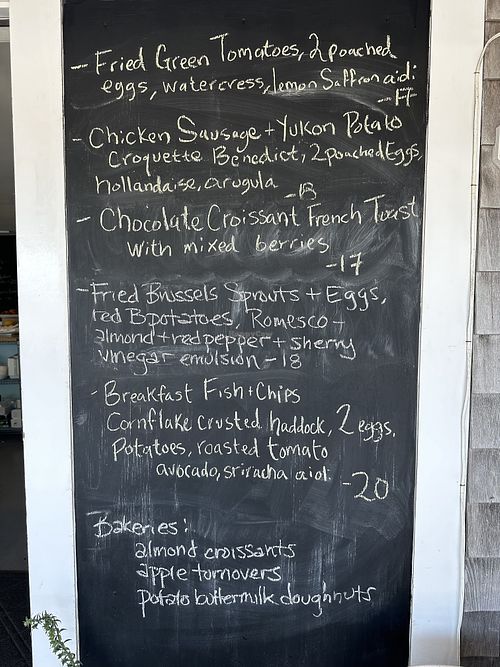 - Fried Green Tomatoes, 2 poached
eggs, watercress, lemon Saffron aioli
-17
- Chicken Sausage + Yukon Potato
Croquette Benedict, 2 poached Eggs,
hollandaise, arugula
-18
- Chocolate Croissant French Toast
with mixed berries
-17
- Fried Brussels Sprouts + Eggs,
red B potatoes, Romesco -
almond + red pepper + sherry
vinegar emulsion - 18
- Breakfast Fish + Chips
Cornflake crusted haddock, 2 eggs,
Potatoes, roasted tomato
avocado, sriracha aioli
-20
Bakeries:
almond croissants
apple turnovers
potato buttermilk doughnuts